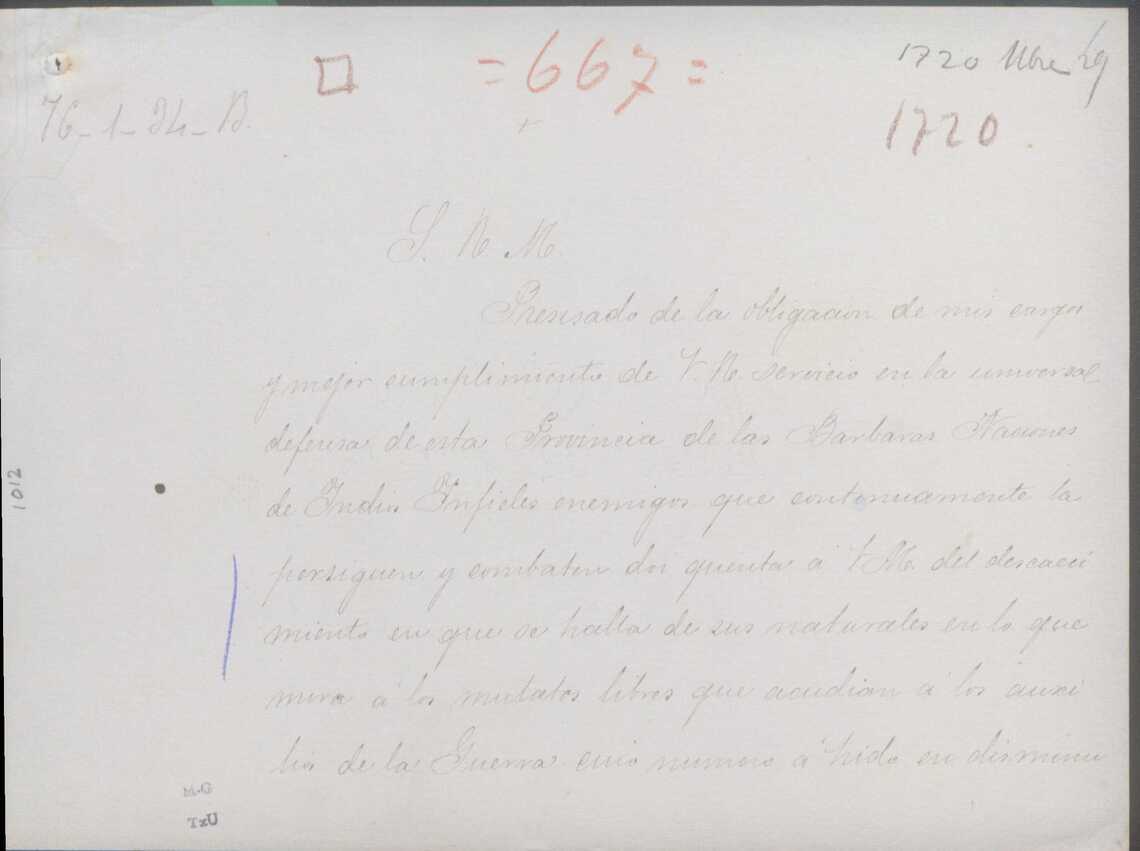 = 667 =
1720 Mbre 29
1720.
76-1-34-B.
S. R. M.
Presisado de la obligacion de mis cargos
y mejor cumplimiento de V. R. servicio en la universal
defensa de esta Provincia de las Barbaras Naciones
de Indios Infieles enemigos que continuamente la
persiguen y combaten doi quenta á V.M. del descaeci
miento en que se halla de sus naturales en lo que
mira á los mulatos libres que acudian á los auxi
lios de la Guerra cuio numero á hido en disminu
1012
M-G
TxU